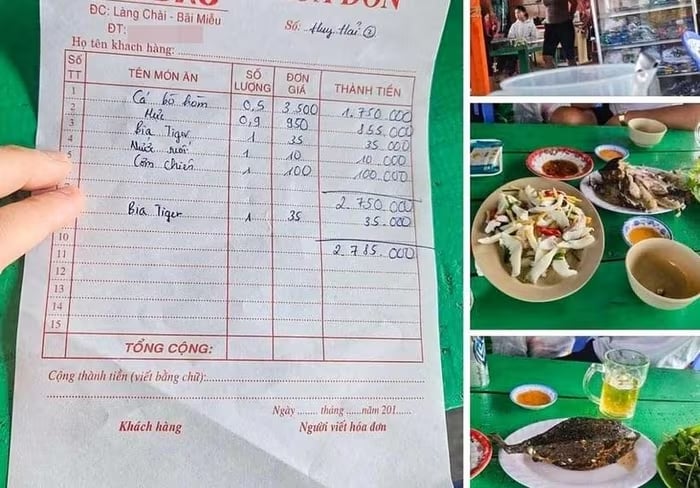 HÓA ĐƠN
ĐC: Làng Chài - Bãi Miễu
ĐT:
Số: Huy Hải 2
Họ tên khách hàng:
Số TT TÊN MÓN ĂN SỐ LƯỢNG ĐƠN GIÁ THÀNH TIỀN
1 Cá bò hòm 0,5 3,500 1.750.000
2 Mực 0,9 950 855.000
3 Bia Tiger 1 35 35.000
4 Nước suối 1 10 10.000
Cơm chiên 1 100 100.000
2.750.000
Bia Tiger 1 35 35.000
10 2.785.000
11
12
13
14
15
TỔNG CỘNG:
Cộng thành tiền (viết bằng chữ):
Ngày ........ tháng ......năm 201....
Khách hàng Người viết hóa đơn